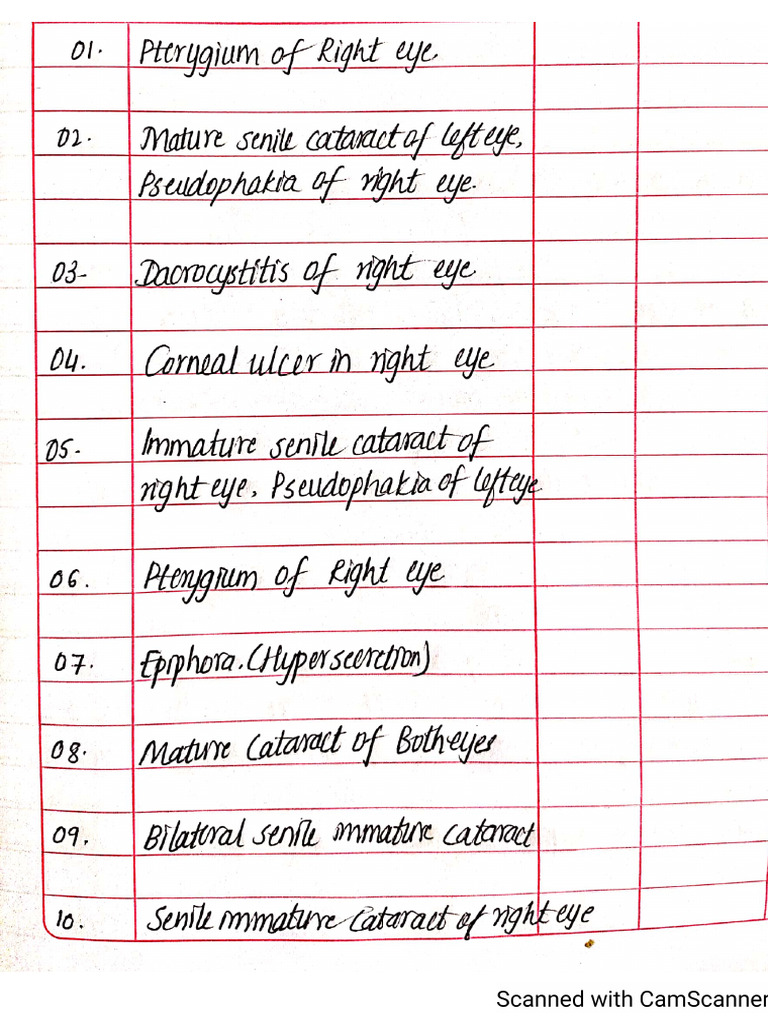 01. Pterygium of Right eye
02. Mature senile cataract of left eye,
Pseudophakia of right eye.
03- Dacrocystitis of right eye
04. Corneal ulcer in right eye
05- Immature senile cataract of
right eye, Pseudophakia of left eye
06. Pterygium of Right eye
07. Epiphora. (Hyper secretion)
08. Mature Cataract of Both eyes
09. Bilateral senile immature cataract
10. Senile immature Cataract of right eye
Scanned with CamScanner